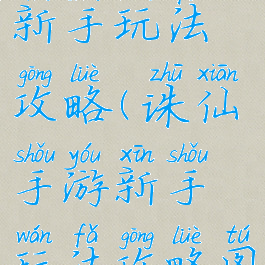 新手玩法
gōng lüè zhū xiān
攻略(诛仙
shǒu yóu xīn shǒu
手游新手
wán fǎ gōng lüè tú
玩法攻略图